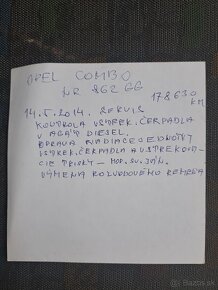 OPEL COMBO
NR 862 GG
178630 KM
14.5.2014. SERVIS
KONTROLA VSTREK. ČERPADLA
V AGÁT DIESEL.
OPRAVA RIADIACEJ JEDNOTKY
VSTREK. ČERPADLA A VSTREKOVA-
CIE TRYSKY —
VÝMENA ROZVODOVÉHO REMEŇA
Bazos.sk